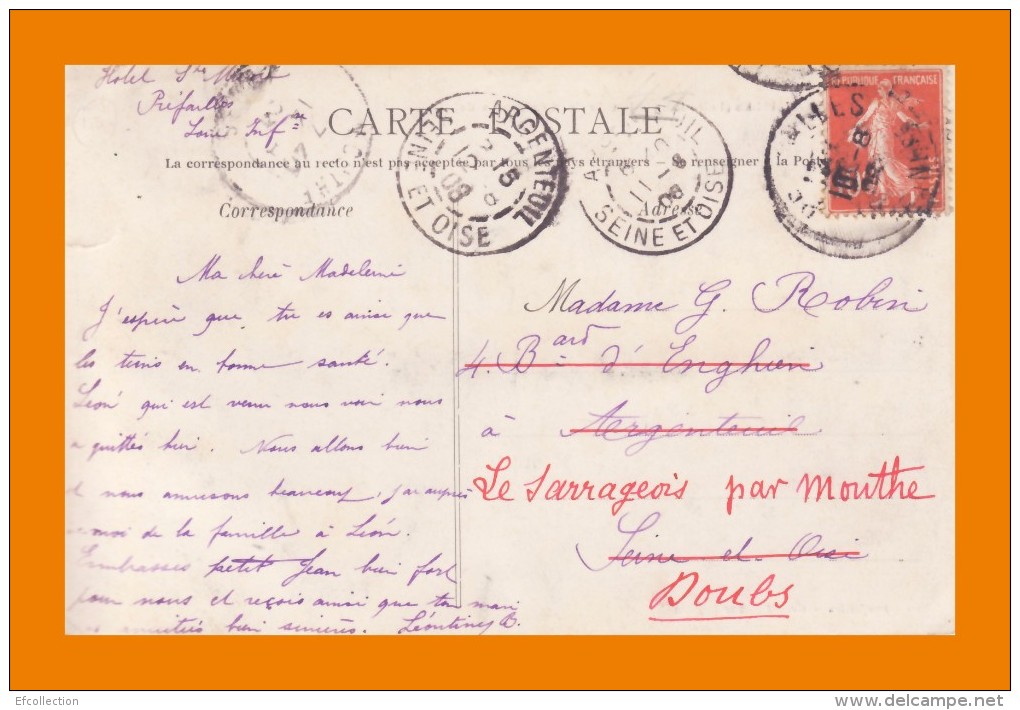 Hotel Ste Marie
Préfailles
Loire Infre
CARTE POSTALE
La correspondance au recto n'est pas acceptée par tous les pays étrangers - Se renseigner à la Poste
Correspondance
Adresse
ARGENTEUIL
SEINE ET OISE
SEINE ET OISE
REPUBLIQUE FRANÇAISE
10
Ma chère Madeleine
J'espère que tu es ainsi que
les tiens en bonne santé.
Léon qui est venu nous voir nous
a quittés hier. Nous allons bien
et nous amusons beaucoup, j'ai auprès
de moi de la famille à Léon.
Embrasses petit Jean bien fort
pour nous et reçois ainsi que ton mari
nos amitiés bien sincères. Léontine B.
Madame G. Robin
4. Bard d'Enghien
à Argenteuil
Le Sarrageois par Mouthe
Seine et Oise
Doubs
Efcollection
delcampe.net